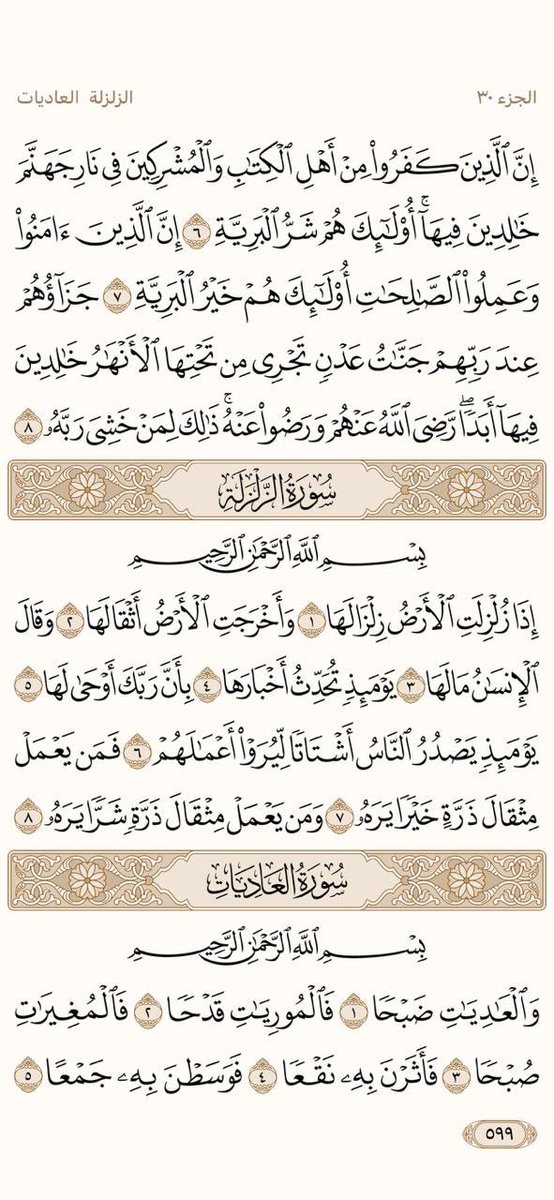 الجزء ٣٠
الزلزلة العاديات
إِنَّ ٱلَّذِينَ كَفَرُوا۟ مِنْ أَهْلِ ٱلْكِتَـٰبِ وَٱلْمُشْرِكِينَ فِى نَارِ جَهَنَّمَ
خَـٰلِدِينَ فِيهَآ ۚ أُو۟لَـٰٓئِكَ هُمْ شَرُّ ٱلْبَرِيَّةِ ٦ إِنَّ ٱلَّذِينَ ءَامَنُوا۟
وَعَمِلُوا۟ ٱلصَّـٰلِحَـٰتِ أُو۟لَـٰٓئِكَ هُمْ خَيْرُ ٱلْبَرِيَّةِ ٧ جَزَآؤُهُمْ
عِندَ رَبِّهِمْ جَنَّـٰتُ عَدْنٍ تَجْرِى مِن تَحْتِهَا ٱلْأَنْهَـٰرُ خَـٰلِدِينَ
فِيهَآ أَبَدًا ۖ رَّضِىَ ٱللَّهُ عَنْهُمْ وَرَضُوا۟ عَنْهُ ۚ ذَٰلِكَ لِمَنْ خَشِىَ رَبَّهُۥ ٨
سُورَةُ الزَّلْزَلَةِ
بِسْمِ ٱللَّهِ ٱلرَّحْمَـٰنِ ٱلرَّحِيمِ
إِذَا زُلْزِلَتِ ٱلْأَرْضُ زِلْزَالَهَا ١ وَأَخْرَجَتِ ٱلْأَرْضُ أَثْقَالَهَا ٢ وَقَالَ
ٱلْإِنسَـٰنُ مَا لَهَا ٣ يَوْمَئِذٍ تُحَدِّثُ أَخْبَارَهَا ٤ بِأَنَّ رَبَّكَ أَوْحَىٰ لَهَا ٥
يَوْمَئِذٍ يَصْدُرُ ٱلنَّاسُ أَشْتَاتًا لِّيُرَوْا۟ أَعْمَـٰلَهُمْ ٦ فَمَن يَعْمَلْ
مِثْقَالَ ذَرَّةٍ خَيْرًا يَرَهُۥ ٧ وَمَن يَعْمَلْ مِثْقَالَ ذَرَّةٍ شَرًّا يَرَهُۥ ٨
سُورَةُ العَادِيَاتِ
بِسْمِ ٱللَّهِ ٱلرَّحْمَـٰنِ ٱلرَّحِيمِ
وَٱلْعَـٰدِيَـٰتِ ضَبْحًا ١ فَٱلْمُورِيَـٰتِ قَدْحًا ٢ فَٱلْمُغِيرَٰتِ
صُبْحًا ٣ فَأَثَرْنَ بِهِۦ نَقْعًا ٤ فَوَسَطْنَ بِهِۦ جَمْعًا ٥
٥٩٩